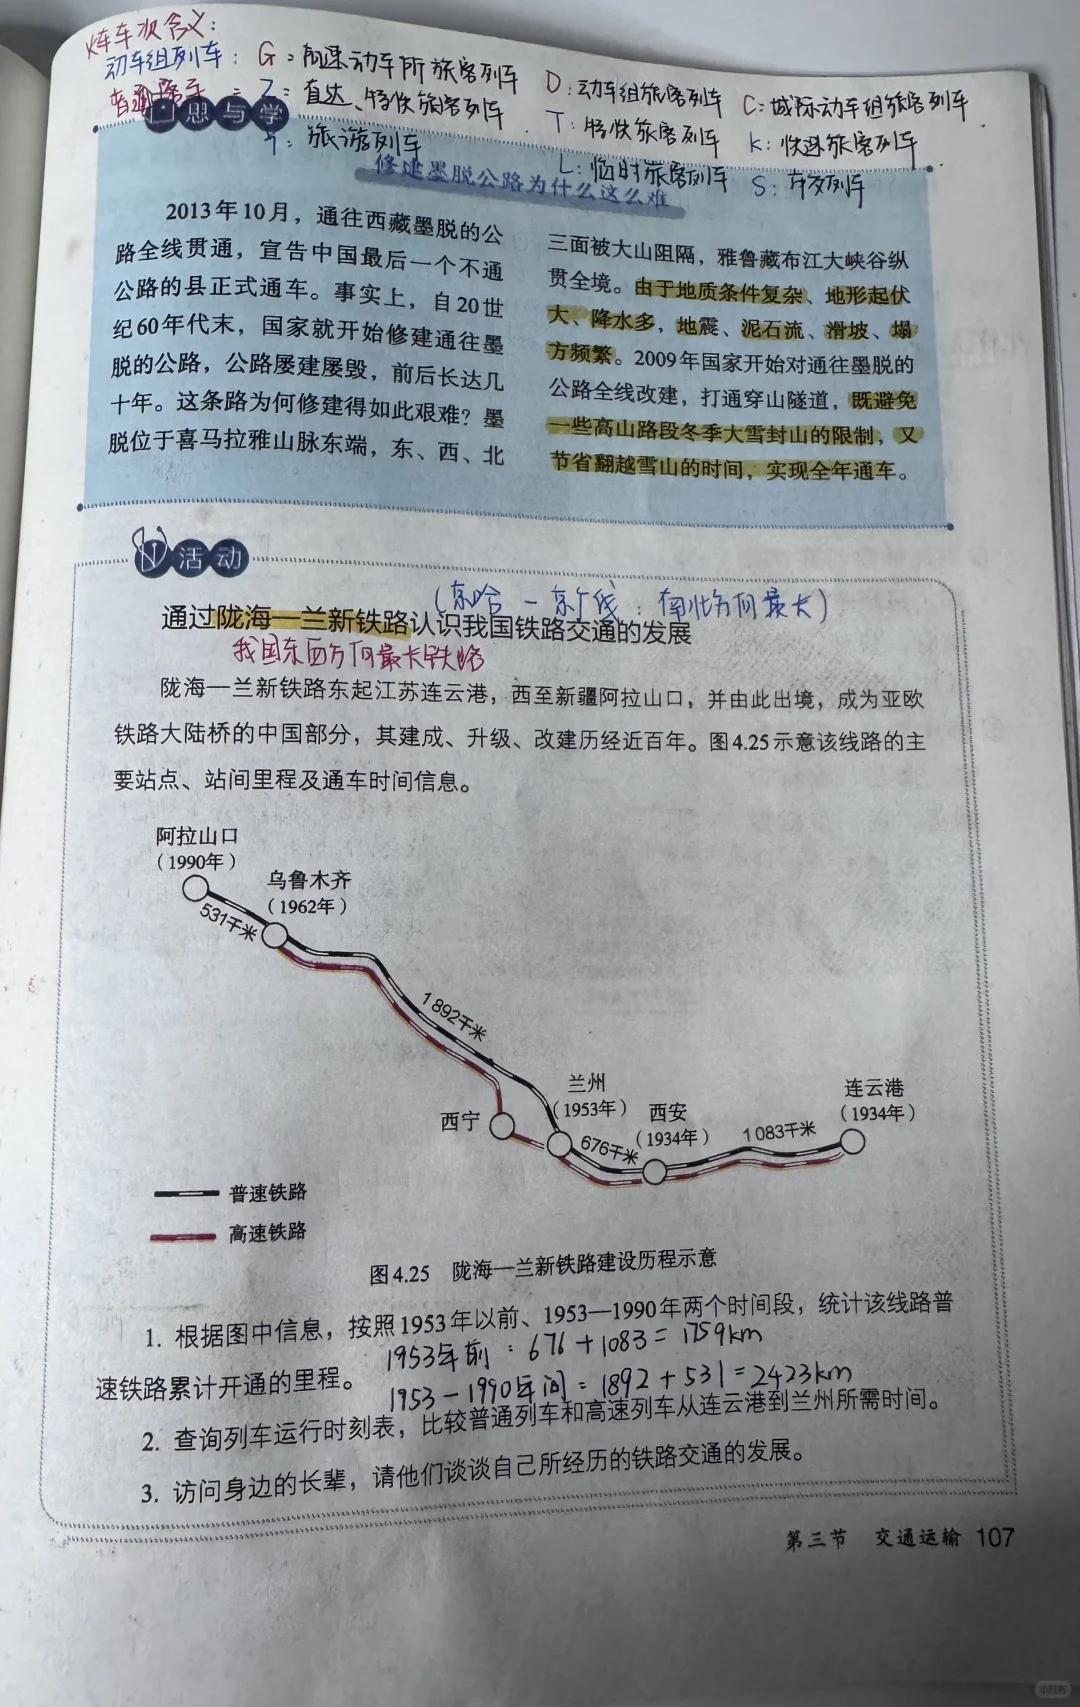 火车车次含义:
动车组列车: G:高速动车所旅客列车 D:动车组旅客列车 C:城际动车组旅客列车
普通 Z:直达、特快旅客列车 T:特快旅客列车 K:快速旅客列车
Y:旅游列车 L:临时旅客列车 S:市郊列车
思与学
修建墨脱公路为什么这么难
2013年10月，通往西藏墨脱的公
路全线贯通，宣告中国最后一个不通
公路的县正式通车。事实上，自20世
纪60年代末，国家就开始修建通往墨
脱的公路，公路屡建屡毁，前后长达几
十年。这条路为何修建得如此艰难？墨
脱位于喜马拉雅山脉东端，东、西、北
三面被大山阻隔，雅鲁藏布江大峡谷纵
贯全境。由于地质条件复杂、地形起伏
大、降水多，地震、泥石流、滑坡、塌
方频繁。2009年国家开始对通往墨脱的
公路全线改建，打通穿山隧道，既避免
一些高山路段冬季大雪封山的限制，又
节省翻越雪山的时间，实现全年通车。
活动
(京哈—京广线:南北方向最大)
通过陇海—兰新铁路认识我国铁路交通的发展
我国东西方向最长铁路
陇海—兰新铁路东起江苏连云港，西至新疆阿拉山口，并由此出境，成为亚欧
铁路大陆桥的中国部分，其建成、升级、改建历经近百年。图4.25示意该线路的主
要站点、站间里程及通车时间信息。
阿拉山口
（1990年）
乌鲁木齐
（1962年）
531千米
1 892千米
兰州
（1953年）
西宁
676千米
西安
（1934年）
1 083千米
连云港
（1934年）
普速铁路
高速铁路
图4.25 陇海—兰新铁路建设历程示意
1. 根据图中信息，按照1953年以前、1953—1990年两个时间段，统计该线路普
速铁路累计开通的里程。
1953年前:676+1083=1759km
1953-1990年间=1892+531=2423km
2. 查询列车运行时刻表，比较普通列车和高速列车从连云港到兰州所需时间。
3. 访问身边的长辈，请他们谈谈自己所经历的铁路交通的发展。
第三节 交通运输 107
小红书